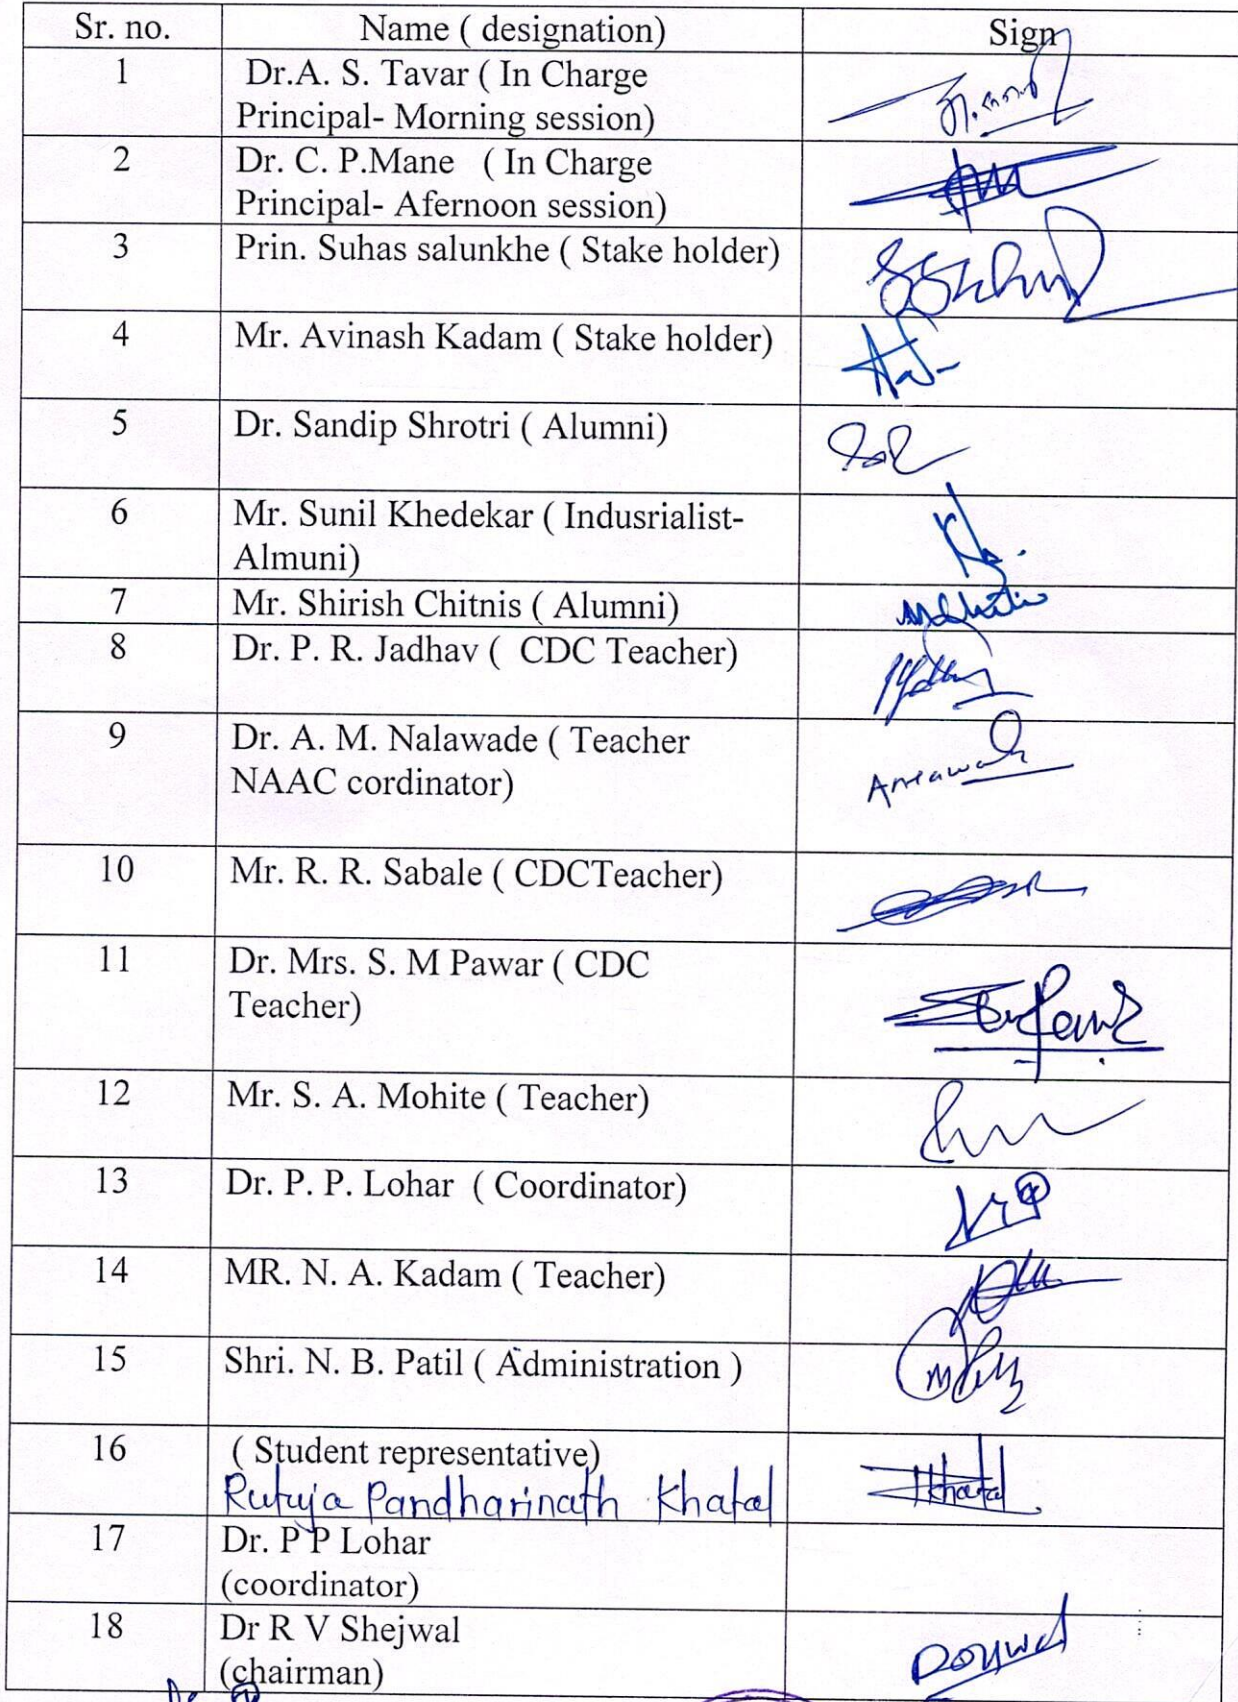 Sr. no. Name ( designation) Sign
1 Dr.A. S. Tavar ( In Charge
Principal- Morning session)
2 Dr. C. P.Mane ( In Charge
Principal- Afernoon session)
3 Prin. Suhas salunkhe ( Stake holder)
4 Mr. Avinash Kadam ( Stake holder)
5 Dr. Sandip Shrotri ( Alumni)
6 Mr. Sunil Khedekar ( Indusrialist-
Almuni)
7 Mr. Shirish Chitnis ( Alumni)
8 Dr. P. R. Jadhav ( CDC Teacher)
9 Dr. A. M. Nalawade ( Teacher
NAAC cordinator)
10 Mr. R. R. Sabale ( CDCTeacher)
11 Dr. Mrs. S. M Pawar ( CDC
Teacher)
12 Mr. S. A. Mohite ( Teacher)
13 Dr. P. P. Lohar ( Coordinator)
14 MR. N. A. Kadam ( Teacher)
15 Shri. N. B. Patil ( Administration )
16 ( Student representative)
Rutuja Pandharinath Khatal Khatal
17 Dr. P P Lohar
(coordinator)
18 Dr R V Shejwal
(chairman)